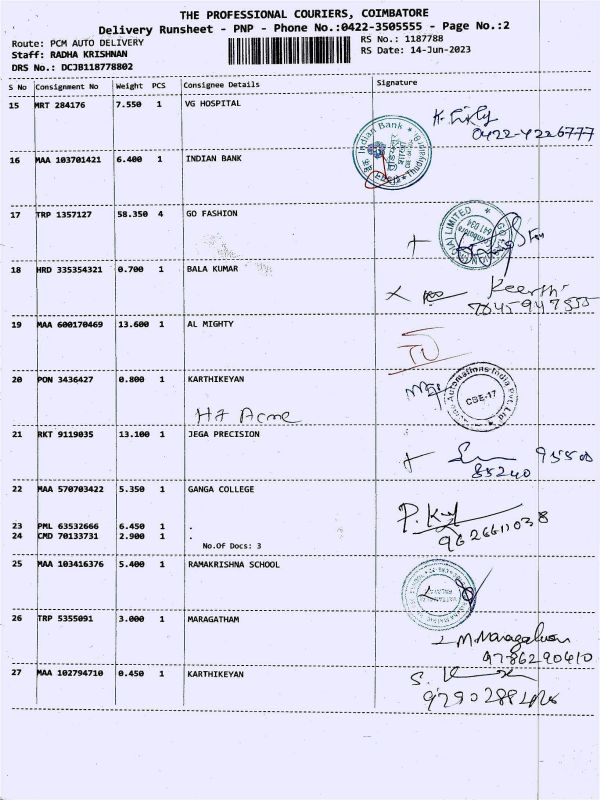 THE PROFESSIONAL COURIERS, COIMBATORE
Delivery Runsheet - PNP - Phone No.:0422-3505555 - Page No.:2
Route: PCM AUTO DELIVERY
RS No.: 1187788
Staff: RADHA KRISHNAN
RS Date: 14-Jun-2023
DRS No.: DCJB118778802
S No Consignment No Weight PCS Consignee Details Signature
15 MRT 284176 7.550 1 VG HOSPITAL
0422-4226777
16 MAA 103701421 6.400 1 INDIAN BANK
Indian Bank
Thudiyalur
17 TRP 1357127 58.350 4 GO FASHION
LIMITED
641 034
18 HRD 335354321 0.700 1 BALA KUMAR
Keerthi
7845947555
19 MAA 600170469 13.600 1 AL MIGHTY
20 PON 3436427 0.800 1 KARTHIKEYAN
Automations India Pvt. Ltd
CBE-17
H7 Acme
21 RKT 9119035 13.100 1 JEGA PRECISION
95500
85240
22 MAA 570703422 5.350 1 GANGA COLLEGE
23 PML 63532666 6.450 1 .
24 CMD 70133731 2.900 1 .
No.Of Docs: 3
9626611038
25 MAA 103416376 5.400 1 RAMAKRISHNA SCHOOL
26 TRP 5355091 3.000 1 MARAGATHAM
9786290610
27 MAA 102794710 0.450 1 KARTHIKEYAN
S.